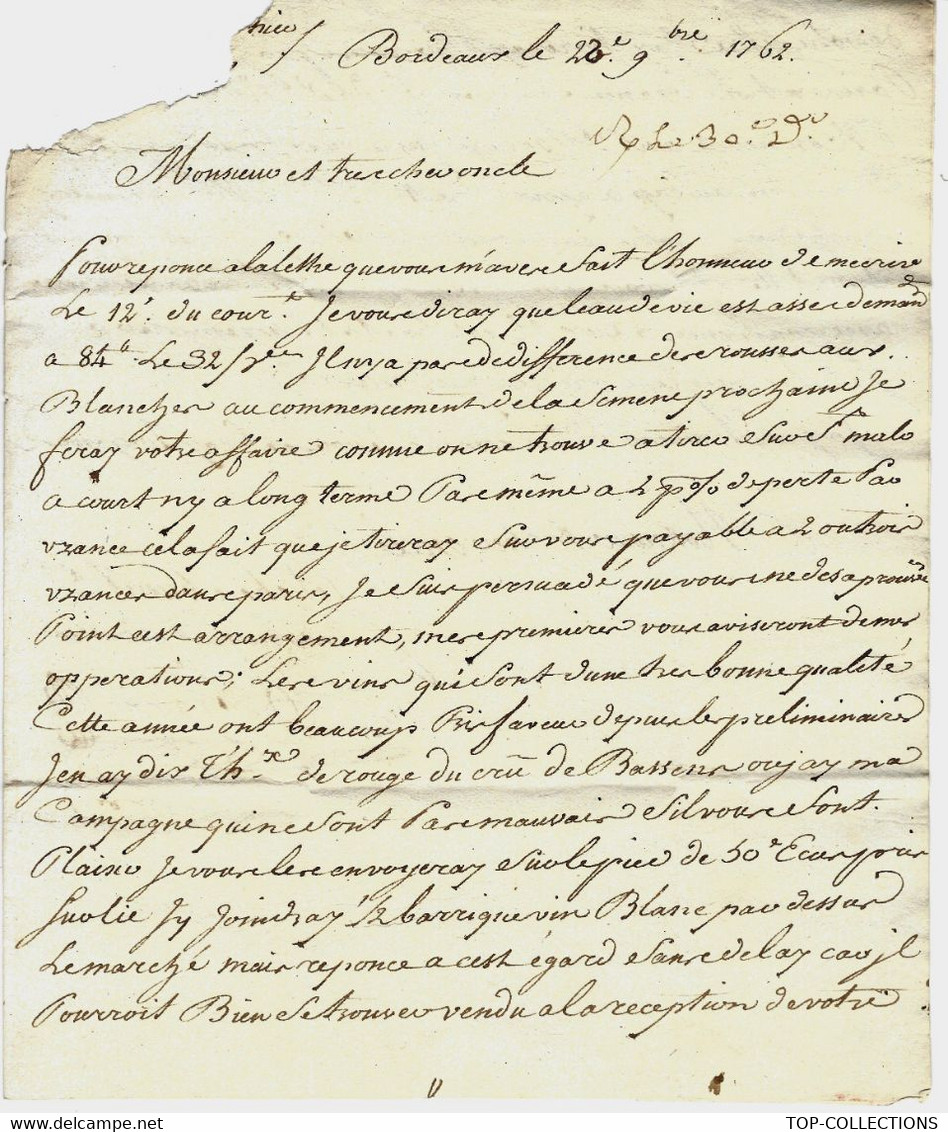 Bordeaux le 23e. 9bre 1762.
Le 30e. Do.
Monsieur et tres cher oncle
Pour reponce a la lettre que vous m'aves fait l'honneur de mecrire
Le 12e. du court. Je vous diray que leau de vie est asses demandé
a 84tt. Le 32/ Il ny a pas de difference des rousses aux
Blanches au commencement de la semene prochaine Je
feray votre affaire comme on ne trouve a tirer sur St. malo
a court ny a long terme Pas même a 2 p% de perte Par
uzance cela fait que je tireray sur vous payable a 2 ou trois
uzances dans paris, Je suis persuadé que vous ne desaprouvere
Point cest arrangement, mes premieres vous aviseront de mes
opperations; Les vins qui sont dune tres bonne qualité
Cette année ont beaucoup Pris faveur depuis les preliminaires
Jen ay dix Thx. de rouge du crû de Bassens ou jay ma
Campagne qui ne sont Pas mauvais Sil vous font
Plaisir Je vous les envoyeray sur le pied de 50e Ecus pris
sur lie Jy Joindray 1/2 barrique vin Blanc par dessus
Le marché mais reponce a cest égard sans delay car jl
Pourroit Bien se trouver vendu a la reception de votre
TOP-COLLECTIONS